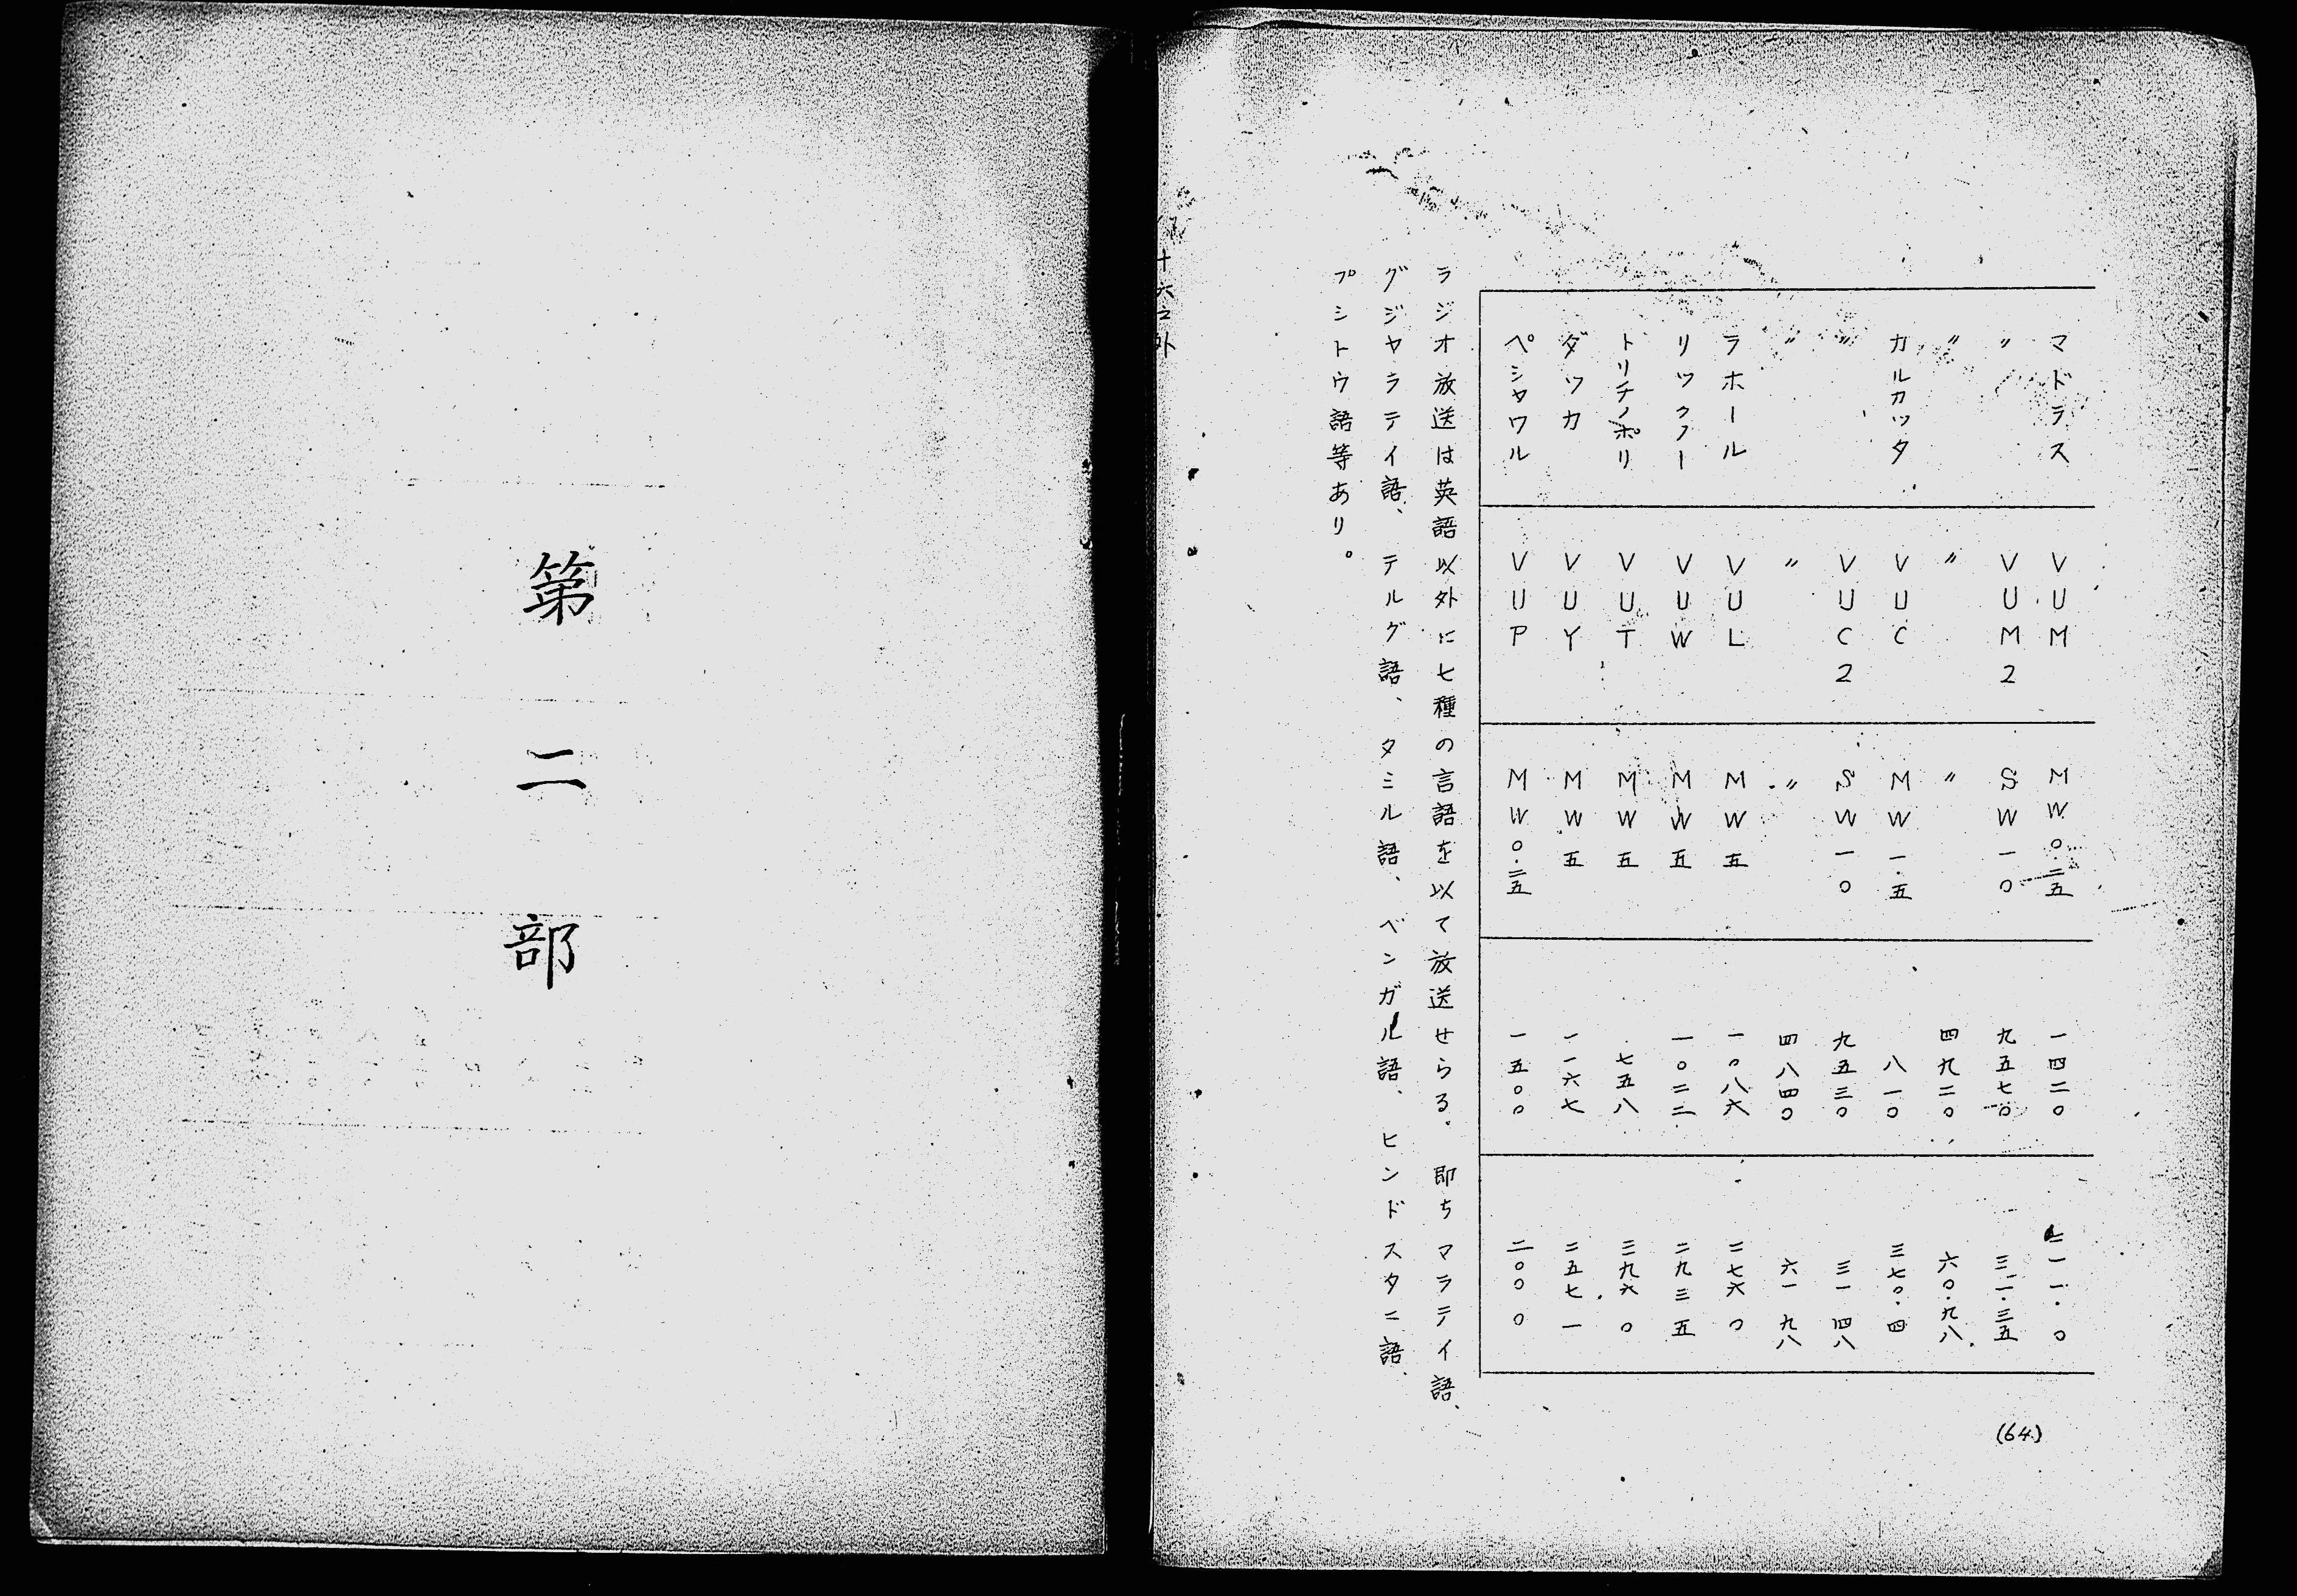 マドラス VUM MW〇・二五 一四二〇 二一一・〇
〃 VUM2 SW一〇 九五七〇 三一・三五
〃 〃 〃 四九二〇 六〇・九八
カルカツタ VUC MW一・五 八一〇 三七〇・四
〃 VUC2 SW一〇 九五三〇 三一 四八
〃 〃 〃 四八四〇 六一 九八
ラホール VUL MW五 一〇八六 二七六 〇
リツクノー VUW MW五 一〇二二 二九三 五
トリチノポリ VUT MW五 七五八 三九六 〇
ダツカ VUY MW五 一一六七 二五七 一
ペシヤワル VUP MW〇・二五 一五〇〇 二〇〇 〇
ラジオ放送は英語以外に七種の言語を以て放送せらる。即ちマラテイ語、
グジヤラテイ語、テルグ語、タミル語、ベンガル語、ヒンドスタニ語、
プシトウ語等あり。
(64)
十六之外
第二部